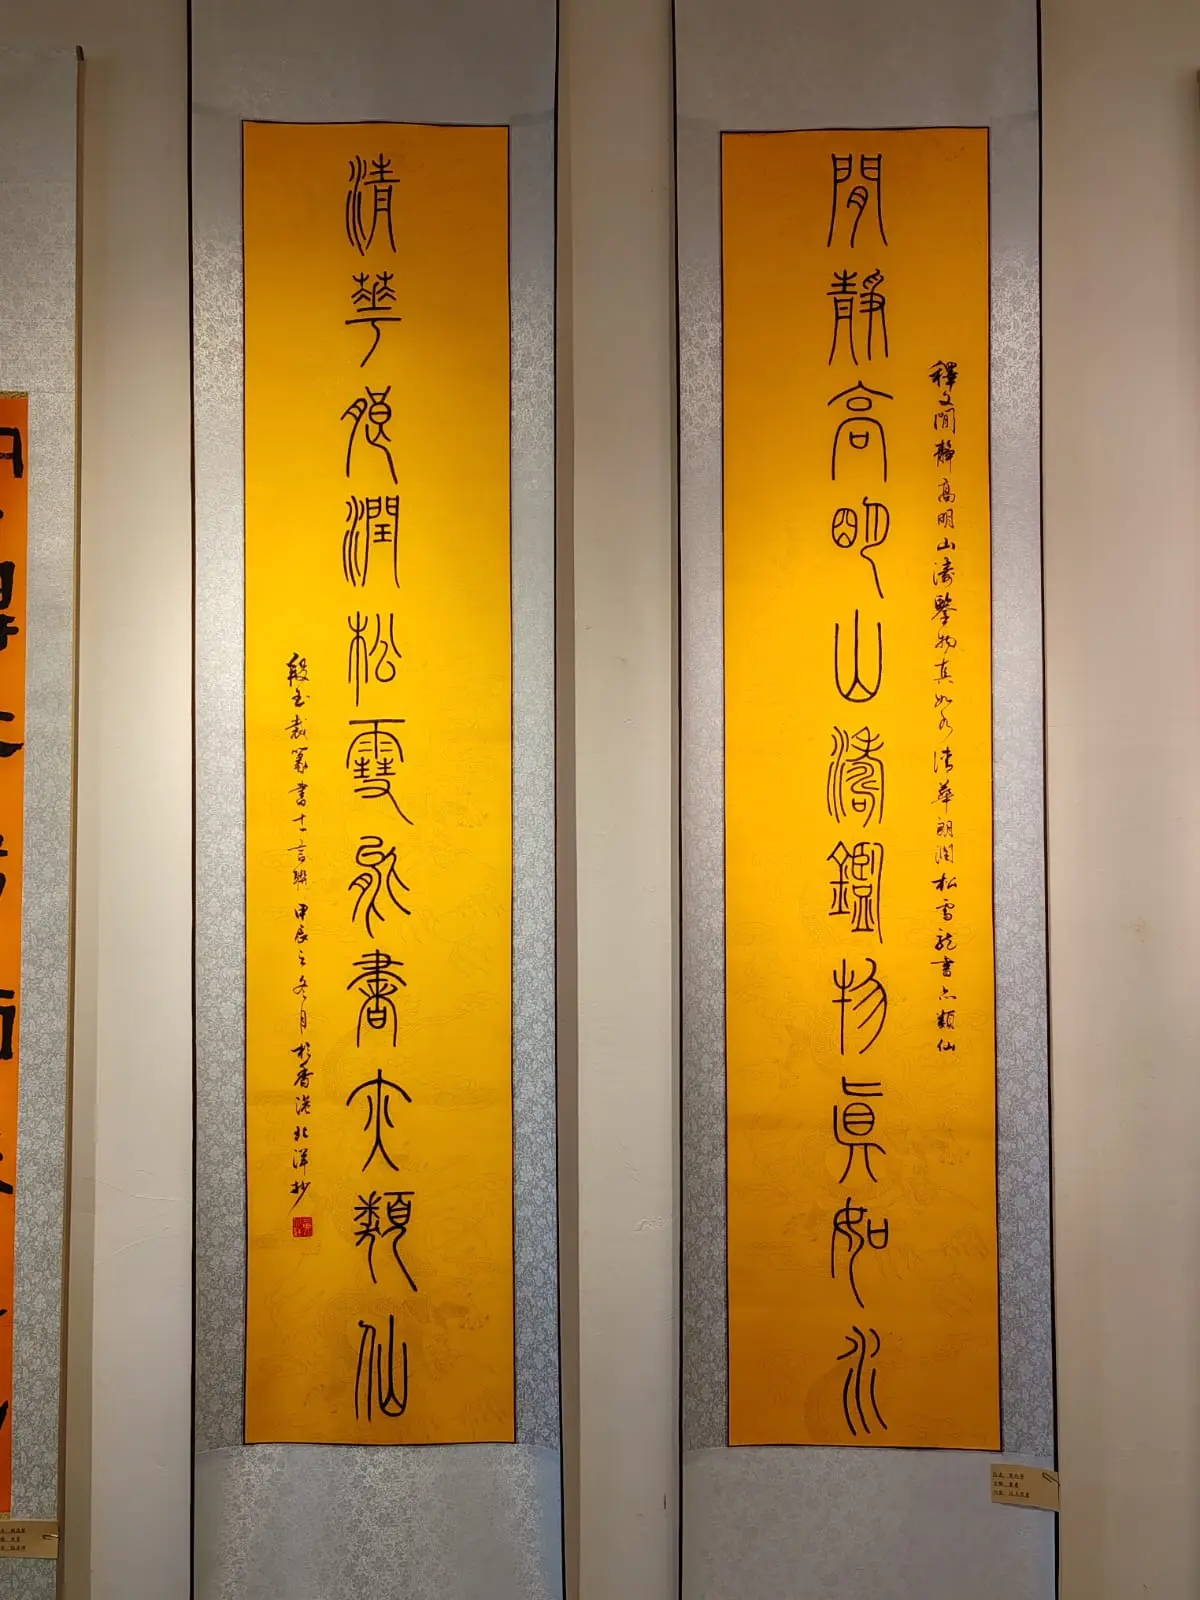 釋文閒靜高明山濤鑒物真如水清華朗潤松雪能書亦類仙
閒靜高明山濤鑑物眞如水
清華朗潤松雪能書亦類仙
段玉裁篆書十一言聯甲辰之冬月於香港北洋抄